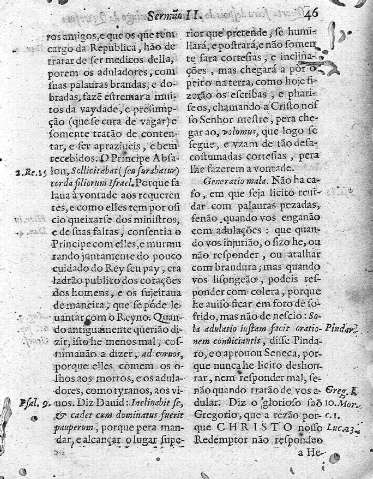 Sermão II.
46
ros amigos, e que os que tem
cargo da Republica, hão de
tratar de ser medicos della,
porem os aduladores, com
suas palauras brandas, e do-
bradas, fazē estremar a mui-
tos da vaydade, e presump-
ção (que se cura de vagar) e
somente tratão de conten-
tar, e ser apraziueis, e bem
recebidos. O Principe Absa-
2. Re. 15
lon, Sollicitabat (seu furabatur)
corda filiorum Israel. Porque fa
laua à vontade aos requeren
res, e como elles tem por os
cio queixarse dos ministros,
e de suas faltas, consentia o
Principe com elles, e murmu
rando juntamente do pouco
cuidado do Rey seu pay, era
ladrão publico dos corações
dos homens, e os sujeitaua
de maneira, que se pode le
uantar com o Reyno. Quan-
do antiguamente querião di-
zir, isto he menos mal, cos-
tumauão a dizer, ad coruos,
porque elles comem os o-
lhos aos mortos, e os adula-
dores, como tyranos, aos vi-
Psal. 9.
uos. Diz Dauid: Inclinabit se,
& cadet cum dominatus fuerit
pauperum, porque pera man-
dar, e alcançar o lugar supe-
rior que pretende, se humi-
lhará, e postrará, e não somen
te fara cortesias, e inclina-
ções, mas chegará a por o
peito na terra, como hoje fi-
zerão os escribas, e phari-
seos, chamando a Cristo nos
so Senhor mestre, pera che-
gar ao, volumus, que logo se
segue, e vzam de tão desa-
costumadas cortesias, pera
lhe fazerem a vontade.
Generatio mala. Não ha ca-
so, em que seja licito respon-
dar com palauras pezadas,
senão quando vos enganão
com adulações: que quan-
do vos injurião, o sizo he, ou
não responder, ou atalhar
com brandura; mas quando
vos lisongeão, podeis res-
ponder com colera, porque
he auiso ficar em foro de so-
frido, mas não de nescio: So-
la adulatio iustam facit oratio-
Pindar.
nem conuiciantis, disse Pinda-
ro, e o aprouou Seneca, por-
que nunca he licito deshon-
rar, nem responder mal, se-
não quando tratão de vos a-
Greg. l.
dular. Diz o glorioso saõ
10. Mor.
Gregorio, que a rezão por-
c. 1.
que CHRISTO nosso
Luc. 23
Redemptor não respondeo
a He-